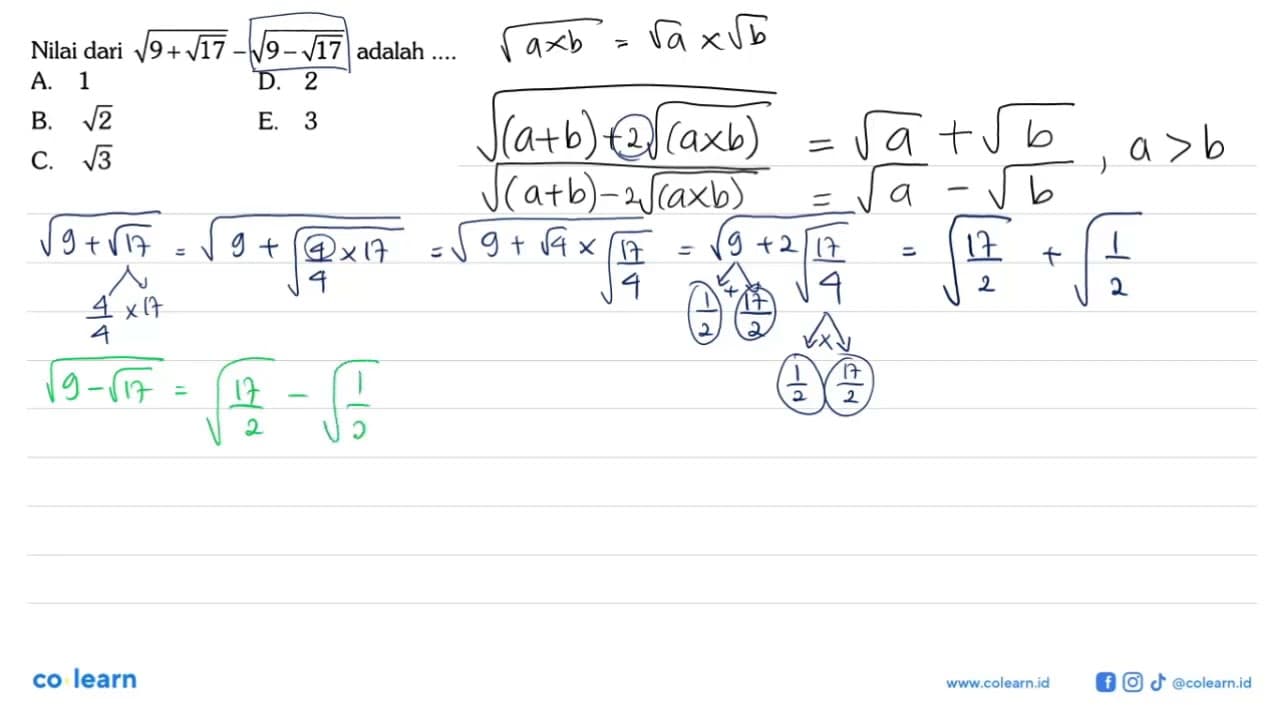 Nilai dari √(9+√17) − √(9−√17) adalah ....
A. 1
D. 2
B. √2
E. 3
C. √3
√(a×b) = √a × √b
√((a+b)+2√(a×b)) = √a + √b , a > b
√((a+b)−2√(a×b)) = √a − √b
√(9+√17) = √(9+√(4/4 × 17)) = √(9+√4 × √(17/4)) = √(9+2√(17/4)) = √(17/2) + √(1/2)
4/4 × 17
1/2 + 17/2
1/2 × 17/2
√(9−√17) = √(17/2) − √(1/2)
co learn
www.colearn.id
@colearn.id